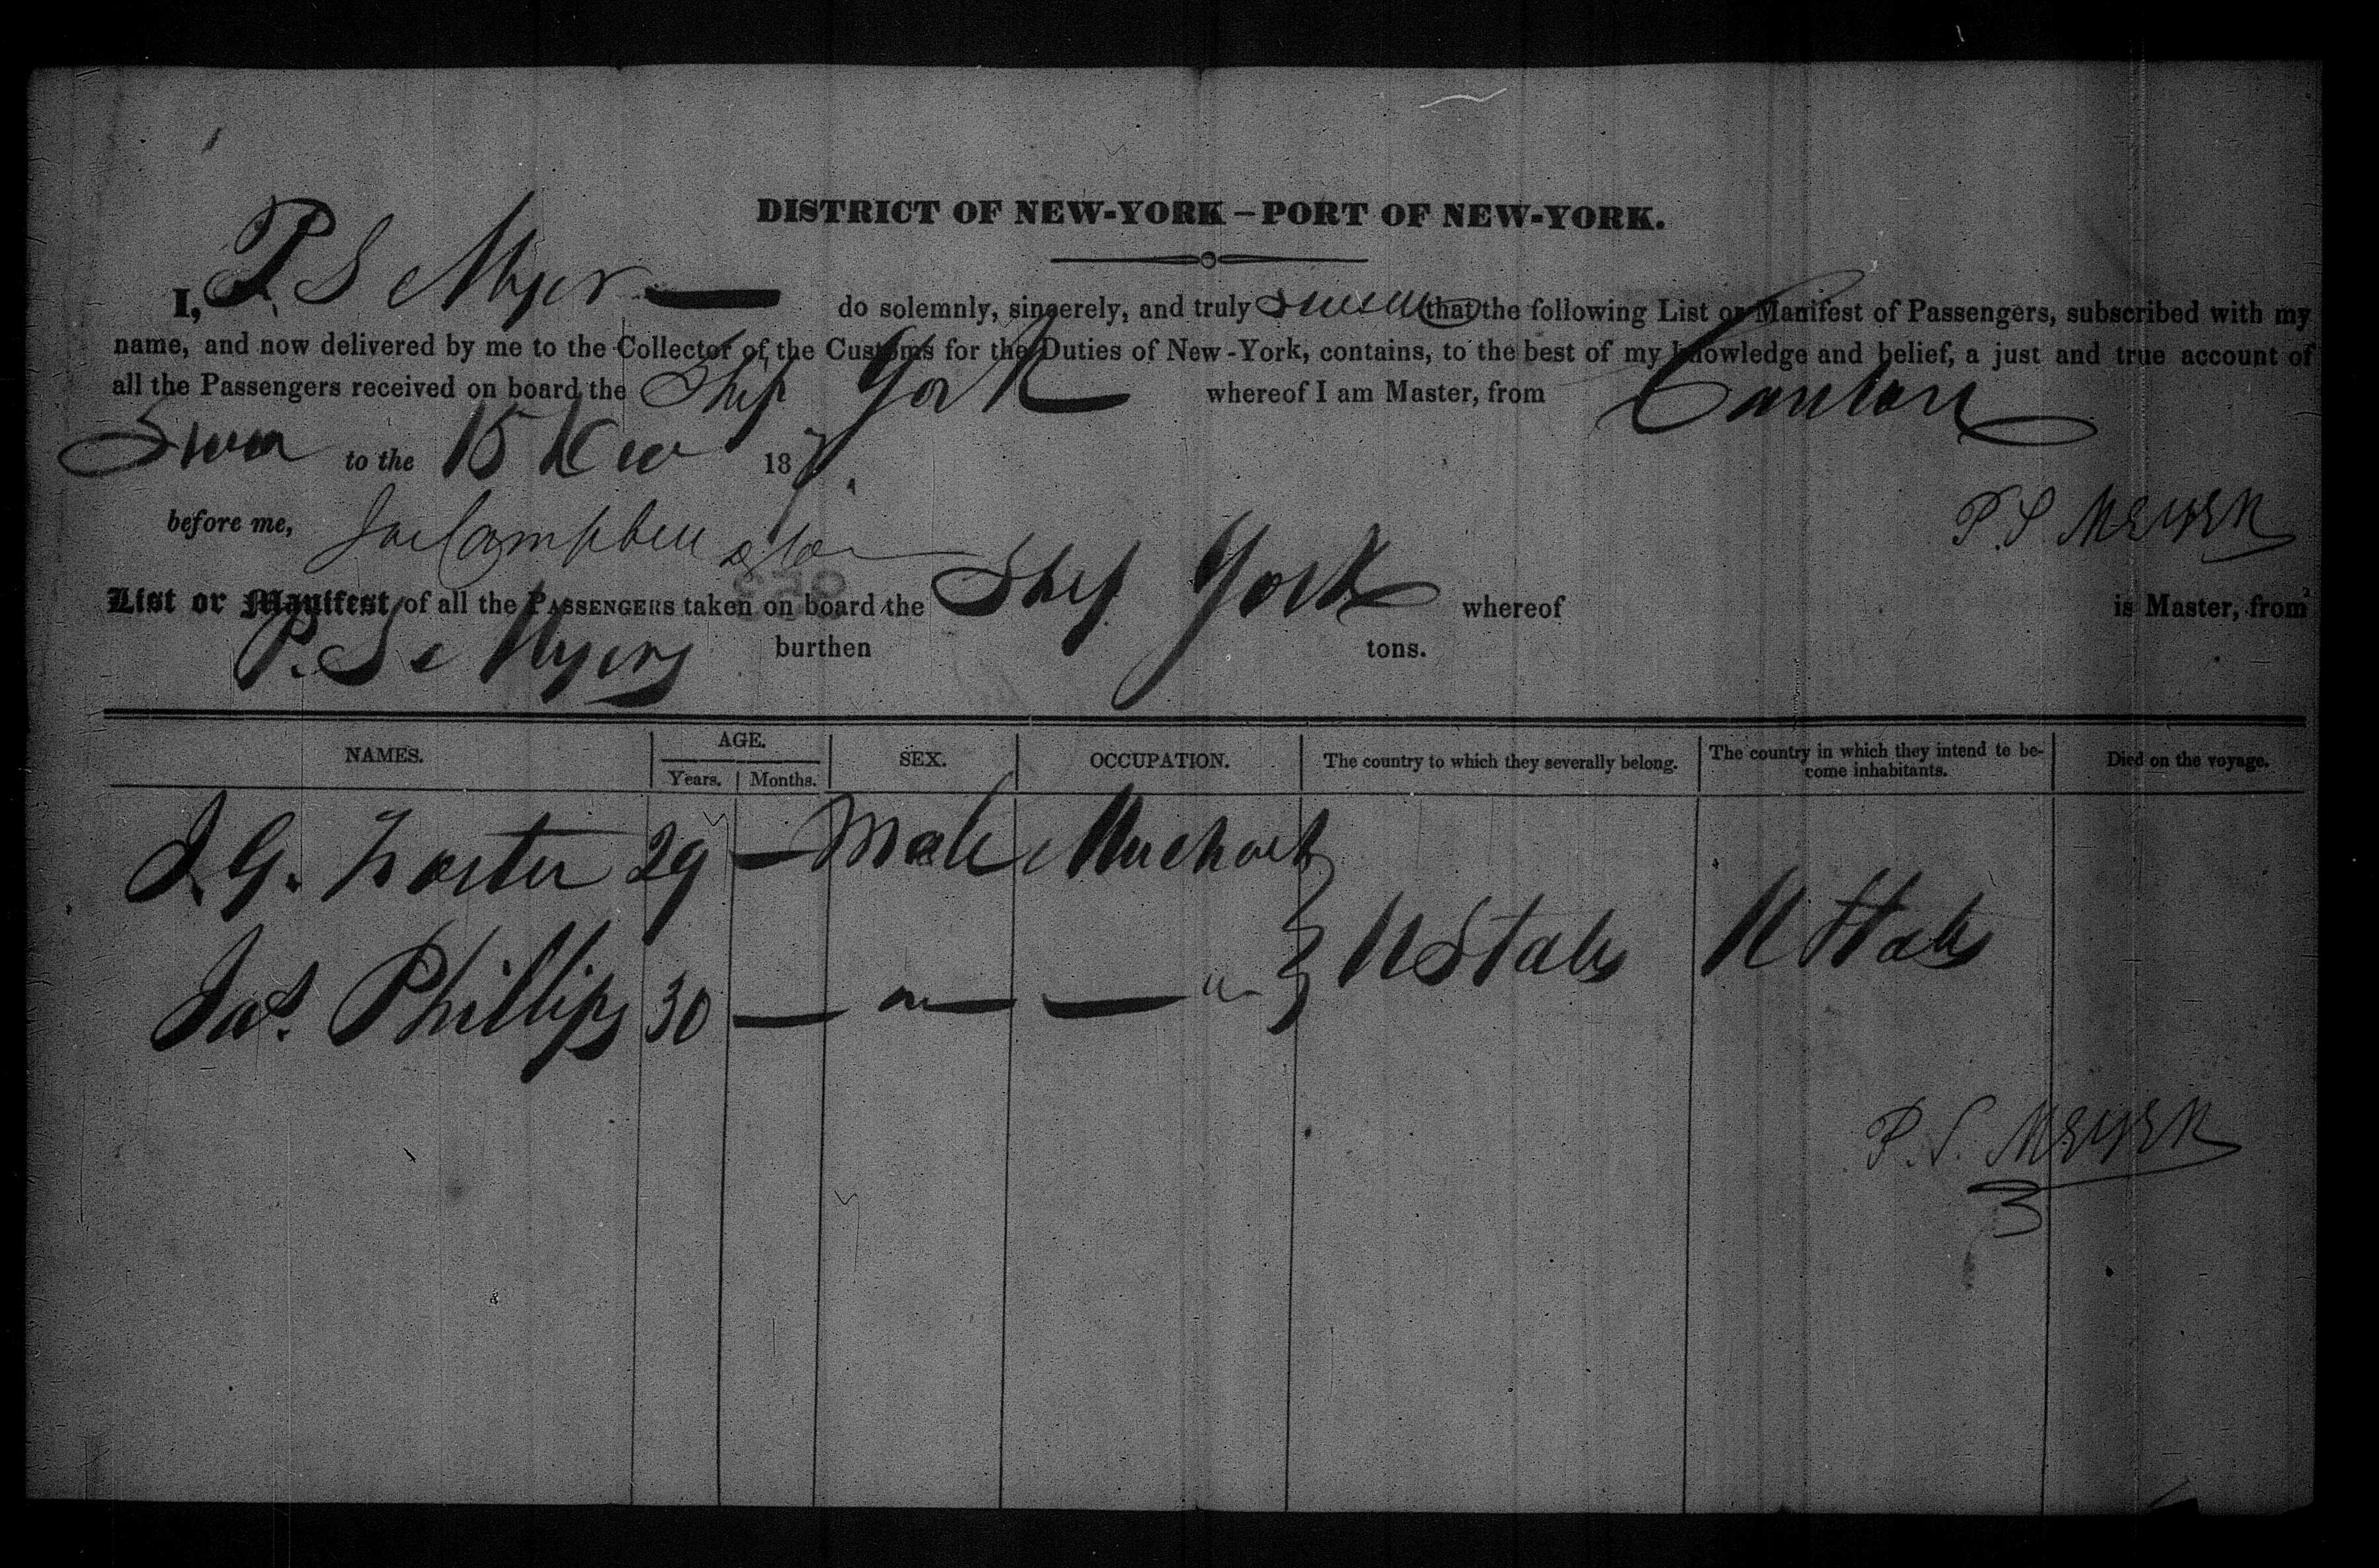 DISTRICT OF NEW-YORK – PORT OF NEW-YORK.
I, P S Myer do solemnly, sincerely, and truly swear that the following List or Manifest of Passengers, subscribed with my
name, and now delivered by me to the Collector of the Customs for the Duties of New-York, contains, to the best of my knowledge and belief, a just and true account of
all the Passengers received on board the Ship York whereof I am Master, from Canton
to the 15 18
before me, Campbell
P.S. MEYER
List or Manifest of all the PASSENGERS taken on board the Ship York whereof is Master, from
P. S Myers burthen tons.
NAMES. AGE. SEX. OCCUPATION. The country to which they severally belong. The country in which they intend to be- Died on the voyage.
Years. Months. come inhabitants.
29 Male Merchant
U States U States
Jas. Phillips 30 — " — — "
P. S. MEYER